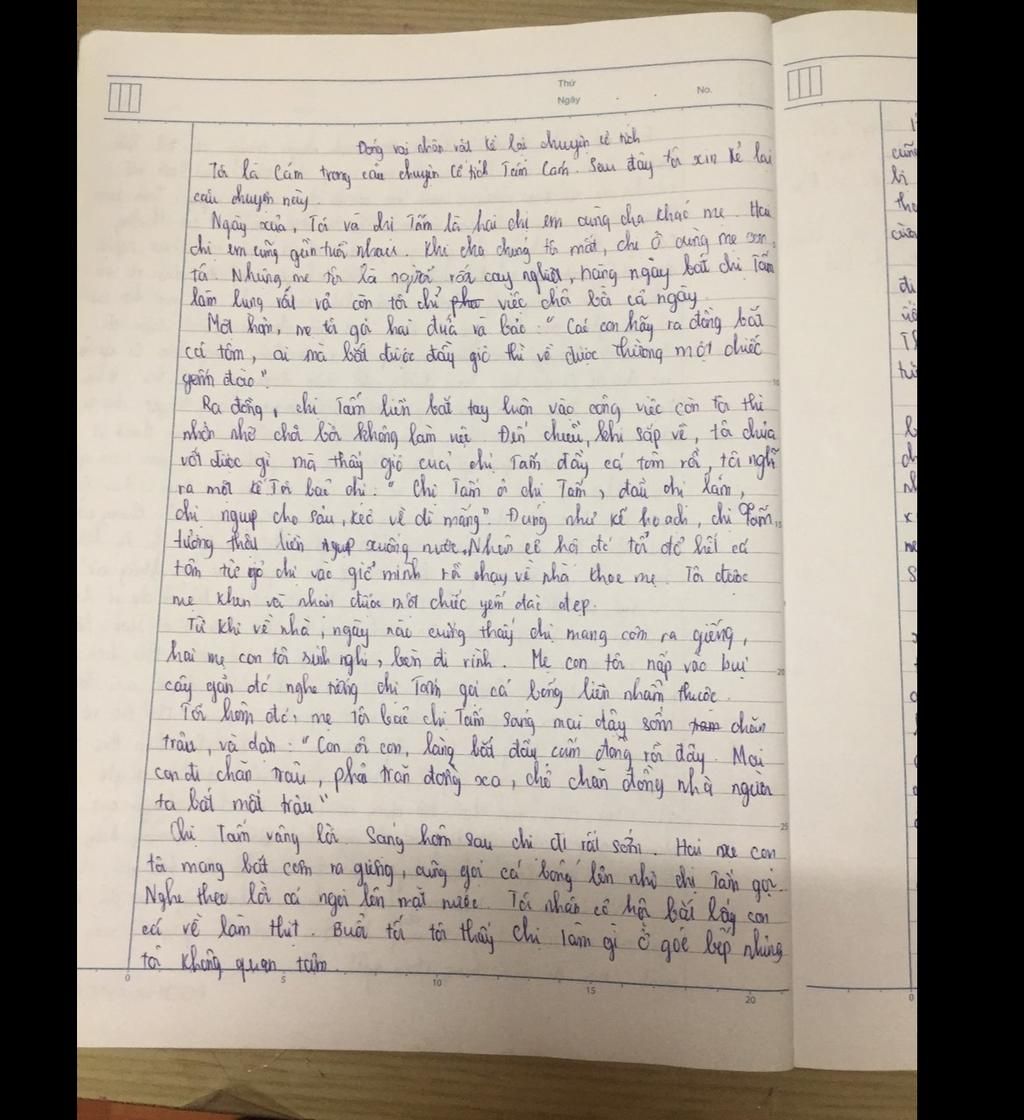 Thứ
Ngày
No.
Đóng vai nhân vật kể lại chuyện cổ tích
Tôi là Cám trong câu chuyện cổ tích Tấm Cám. Sau đây tôi xin kể lại
câu chuyện này.
Ngày xưa, Tôi và chị Tấm là hai chị em cùng cha khác mẹ. Hai
chị em cũng gần tuổi nhau. Khi cha chúng tôi mất, chị ở cùng mẹ con
tôi. Nhưng mẹ tôi là người rất cay nghiệt, hàng ngày bắt chị Tấm
làm lụng vất vả còn tôi chỉ việc chơi bời cả ngày.
Một hôm, mẹ tôi gọi hai đứa và bảo: "Các con hãy ra đồng bắt
cá tôm, ai mà bắt được đầy giỏ thì về được thưởng một chiếc
yếm đào".
Ra đồng, chị Tấm liền bắt tay luôn vào công việc còn tôi thì
nhởn nhơ chơi bời không làm việc. Đến chiều, khi sắp về, tôi chưa
vớt được gì mà thấy giỏ của chị Tấm đầy cá tôm rồi, tôi nghĩ
ra một kế. Tôi bảo chị: "Chị Tấm ơi chị Tấm, đầu chị lấm,
chị ngụp cho sâu, kẻo về dì mắng". Đúng như kế hoạch, chị Tấm
tưởng thật liền ngụp xuống nước. Nhân cơ hội đó tôi đổ hết cá
tôm từ giỏ chị vào giỏ mình rồi chạy về nhà khoe mẹ. Tôi được
mẹ khen và nhận được một chiếc yếm đào đẹp.
Từ khi về nhà, ngày nào cũng thấy chị mang cơm ra giếng,
hai mẹ con tôi sinh nghi, bèn đi rình. Mẹ con tôi nấp vào bụi
cây gần đó nghe tiếng chị Tấm gọi cá bống liền nhẩm thuộc.
Tối hôm đó, mẹ tôi bảo chị Tấm sáng mai dậy sớm chăn
trâu, và dặn: "Con ơi con, làng bắt đầu cấm đồng rồi đấy. Mai
con đi chăn trâu, phải trăn đồng xa, chớ chăn đồng nhà người
ta bắt mất trâu"
Chị Tấm vâng lời. Sáng hôm sau chị đi rất sớm. Hai mẹ con
tôi mang bát cơm ra giếng, cũng gọi cá bống lên như chị Tấm gọi.
Nghe theo lời cá ngoi lên mặt nước. Tôi nhân cơ hội bắt lấy con
cá về làm thịt. Buổi tối tôi thấy chị làm gì ở góc bếp nhưng
tôi không quan tâm.
0 5 10 15 20